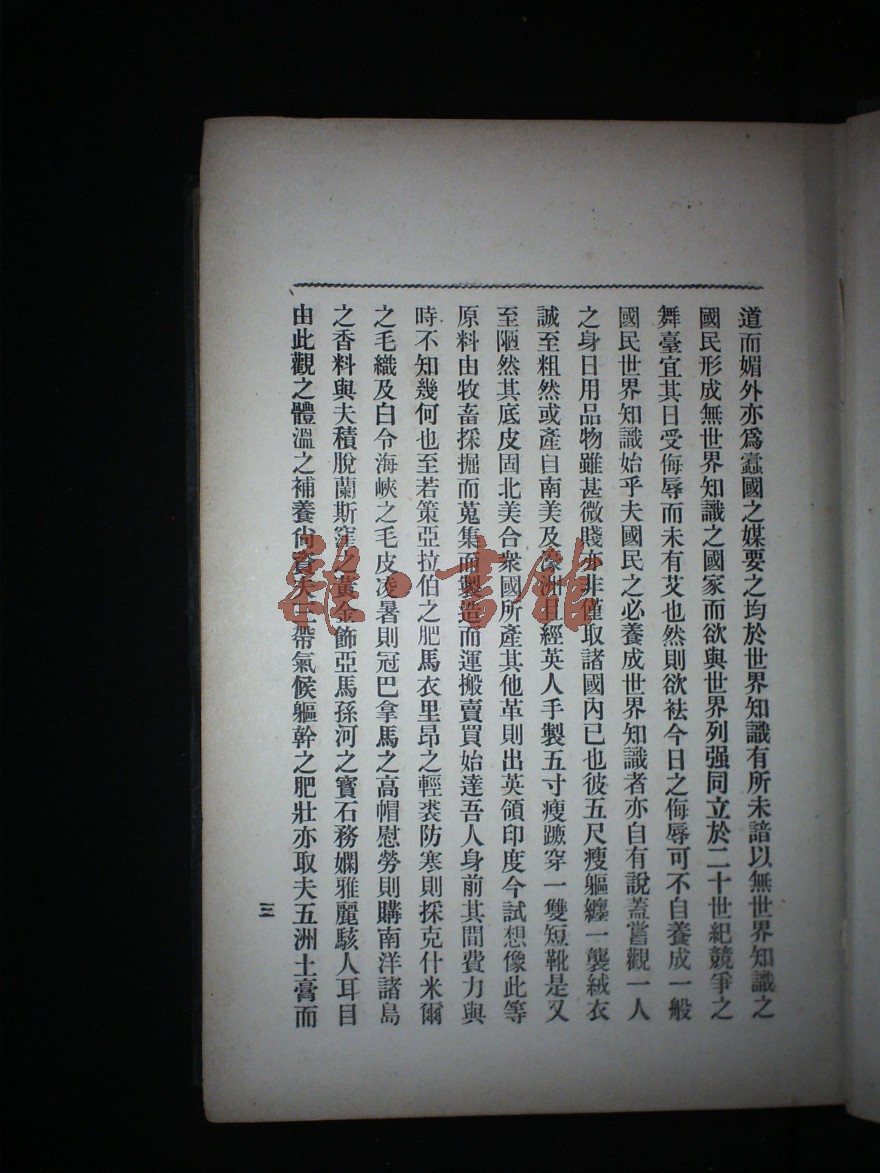 道而媚外亦爲蠹國之媒要之均於世界知識有所未諳以無世界知識之
國民形成無世界知識之國家而欲與世界列强同立於二十世紀競爭之
舞臺宜其日受侮辱而未有艾也然則欲袪今日之侮辱可不自養成一般
國民世界知識始乎夫國民之必養成世界知識者亦自有說蓋嘗觀一人
之身日用品物雖甚微賤亦非僅取諸國內已也彼五尺瘦軀纏一襲絨衣
誠至粗然或產自南美及濠洲且經英人手製五寸瘦蹠穿一雙短靴是又
至陋然其底皮固北美合衆國所產其他革則出英領印度今試想像此等
原料由牧畜採掘而蒐集而製造而運搬賣買始達吾人身前其間費力與
時不知幾何也至若策亞拉伯之肥馬衣里昂之輕裘防寒則採克什米爾
之毛織及白令海峽之毛皮凌暑則冠巴拿馬之高帽慰勞則購南洋諸島
之香料與夫積脫蘭斯窪之黃金飾亞馬孫河之寶石務嫻雅麗駭人耳目
由此觀之體溫之補養尙資夫三帶氣候軀幹之肥壯亦取夫五洲土膏而
三
雜·書館